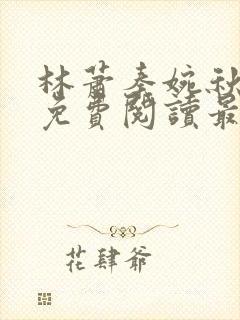 林蕭秦婉秋
免費閱讀最
花肆爺